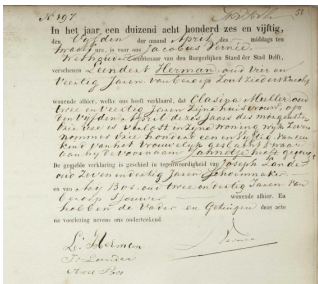 No 197
51
In het jaar, een duizend acht honderd zes en vijftig,
den Vijfden der maand April des middags ten
twaalf ure, is voor ons Jacobus Vernée
Wethouder Ambtenaar van den Burgerlijken Stand der Stad Delft,
verschenen Leendert Herman oud vier en
veertig Jaren van beroep
wonende alhier, welke ons heeft verklaard, dat Clasijna Muller oud
twee en veertig Jaren zijne huisvrouw op
den vijfden April dezes jaars des morgens ten
vier ure is verlost in zijne woning wijk zeven
nommer vier honderd een en vijftig van een
kind van het vrouwelijk geslacht waar
aan hij de voornaam heeft gegeven
De gezegde verklaring is geschied in tegenwoordigheid van Joseph Lander
oud zeven en zestig Jaren Schoenmaker
en van Arij Bos oud twee en zestig Jaren van
beroep Bouwer wonende alhier. En
hebben de Vader en Getuigen deze acte
na voorlezing nevens ons onderteekend.
Ls Herman
Js Lander
Arie Bos
J Vernée